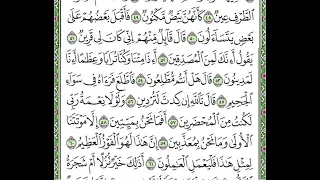 ٱلطَّرْفِ عِينٌ ٤٨ كَأَنَّهُنَّ بَيْضٌ مَّكْنُونٌ ٤٩ فَأَقْبَلَ بَعْضُهُمْ عَلَىٰ
بَعْضٍ يَتَسَآءَلُونَ ٥٠ قَالَ قَآئِلٌ مِّنْهُمْ إِنِّى كَانَ لِى قَرِينٌ ٥١
يَقُولُ أَءِنَّكَ لَمِنَ ٱلْمُصَدِّقِينَ ٥٢ أَءِذَا مِتْنَا وَكُنَّا تُرَابًا وَعِظَٰمًا أَءِنَّا
لَمَدِينُونَ ٥٣ قَالَ هَلْ أَنتُم مُّطَّلِعُونَ ٥٤ فَٱطَّلَعَ فَرَءَاهُ فِى سَوَآءِ
ٱلْجَحِيمِ ٥٥ قَالَ تَٱللَّهِ إِن كِدتَّ لَتُرْدِينِ ٥٦ وَلَوْلَا نِعْمَةُ رَبِّى
لَكُنتُ مِنَ ٱلْمُحْضَرِينَ ٥٧ أَفَمَا نَحْنُ بِمَيِّتِينَ ٥٨ إِلَّا مَوْتَتَنَا
ٱلْأُولَىٰ وَمَا نَحْنُ بِمُعَذَّبِينَ ٥٩ إِنَّ هَٰذَا لَهُوَ ٱلْفَوْزُ ٱلْعَظِيمُ ٦٠
لِمِثْلِ هَٰذَا فَلْيَعْمَلِ ٱلْعَٰمِلُونَ ٦١ أَذَٰلِكَ خَيْرٌ نُّزُلًا أَمْ شَجَرَةُ